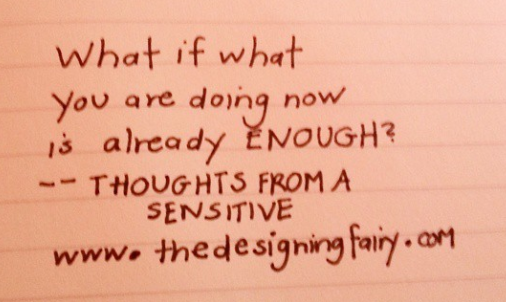 What if what
you are doing now
is already ENOUGH?
-- THOUGHTS FROM A
SENSITIVE
www.thedesigningfairy.com